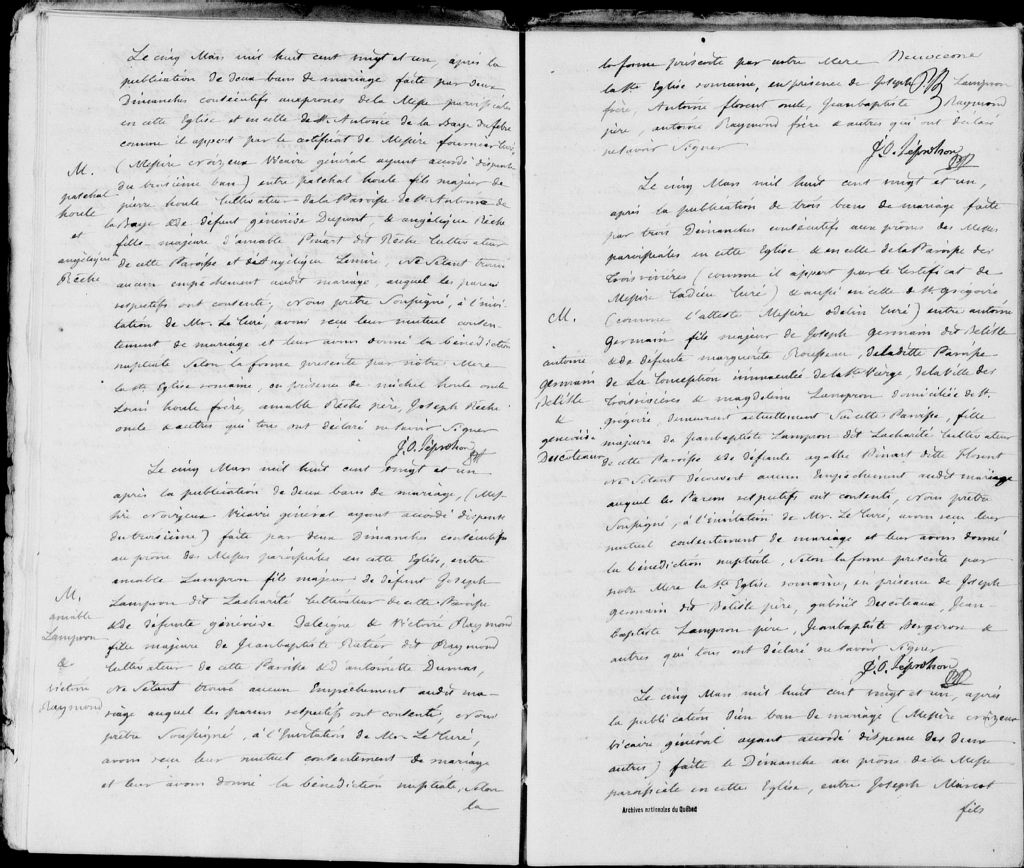 Le cinq Mars mil huit cent vingt et un, après la
publication de deux bans de mariage faite par deux
Dimanches consécutifs aux prônes de la Messe paroissiale
en cette Eglise et en celle de St. Antoine de la Baye du febvre
comme il appert par le certificat de Messire fournier Curé,
(Messire Vicaire général ayant accordé dispense
du troisième ban) entre paschal houle fils majeur de
pierre houle Cultivateur de la Paroisse de St. Antoine de
la Baye & de défunt géneviève Dupont & angélique Rêche
fille majeure d'amable Pinart dit Rêche Cultivateur
de cette Paroisse et de Angélique Lemire, Ne S'étant trouvé
aucun empêchement audit mariage, auquel les parens
respectifs ont consenti; Nous prêtre Soussigné, à l'invi-
tation de Mr. Le Curé, avons reçu leur mutuel consen-
tement de mariage et leur avons donné la bénédiction
nuptiale Selon la forme prescrite par notre Mere
la Ste Eglise romaine, en présence de michel houle oncle
Louis houle frère, amable Rêche père, Joseph Rêche
oncle & autres qui tous ont déclaré ne savoir Signer
M.
paschal
houle
et
angélique
Rêche
J. O. Leprohon Ptre
Le cinq Mars mil huit cent vingt et un
après la publication de deux bans de mariage, (Mes-
sire Vicaire général ayant accordé dispense
du troisième) faite par deux Dimanches consécutifs
au prône des Messes paroissiales en cette Eglise, entre
amable Lampron fils majeur de défunt Joseph
Lampron dit Lacharité Cultivateur de cette Paroisse
& de défunte géneviève & Victoire Raymond
fille majeure de Jeanbaptiste Ratier dit Raymond
Cultivateur de cette Paroisse & d'antoinette Dumas,
Ne S'étant trouvé aucun Empêchement audit ma-
riage auquel les parens respectifs ont consenti, Nous
prêtre Soussigné, à l'Invitation de Mr. Le Curé,
avons reçu leur mutuel consentement de mariage
et leur avons donné la bénédiction nuptiale, Selon
la
M.
amable
Lampron
&
Victoire
Raymond
la forme prescrite par notre Mere
la Ste Eglise romaine, en présence de Joseph Lampron
frère, Antoine florent oncle, Jeanbaptiste Raymond
père, antoine Raymond frère & autres qui ont déclaré
ne savoir Signer
J. O. Leprohon Ptre
Le cinq Mars mil huit cent vingt et un,
après la publication de trois bans de mariage faite
par trois Dimanches consécutifs aux prônes des Messes
paroissiales en cette Eglise & en celle de la Paroisse des
troisrivières (comme il appert par le Certificat de
Messire Cadieu Curé) & aussi en celle de St. grégoire
(comme l'atteste Messire odelin Curé) entre antoine
germain fils majeur de Joseph germain dit Belisle
& de défunte marguérite Rousseau, de la ditte Paroisse
de La Conception immaculée de la Ste Vierge, de la Ville des
troisrivières & magdeleine Lampron domiciliée de St.
grégoire, demeurant actuellement Sur cette Paroisse, fille
majeure de Jeanbaptiste Lampron dit Lacharité Cultivateur
de cette Paroisse & de défunte agathe Pinart ditte florent
Ne S'étant découvert aucun Empêchement audit mariage
auquel les Parens respectifs ont consenti, Nous prêtre
Soussigné, à l'invitation de Mr. Le Curé, avons reçu leur
mutuel consentement de mariage et leur avons donné
la bénédiction nuptiale, Selon la forme prescrite par
notre Mere la Ste Eglise romaine, en présence de Joseph
germain dit Belisle père, gabriel Descoteaux, Jean-
baptiste Lampron père, Jeanbaptiste Bergeron &
autres qui tous ont déclaré ne savoir Signer
M.
antoine
germain
Belisle
&
géneviève
Descoteaux
J. O. Leprohon Ptre
Le cinq Mars mil huit cent vingt et un, après
la publication d'un ban de mariage (Messire
Vicaire général ayant accordé dispense des deux
autres) faite le Dimanche au prône de la Messe
paroissiale en cette Eglise, entre Joseph Marcot
fils
Archives nationales du Québec